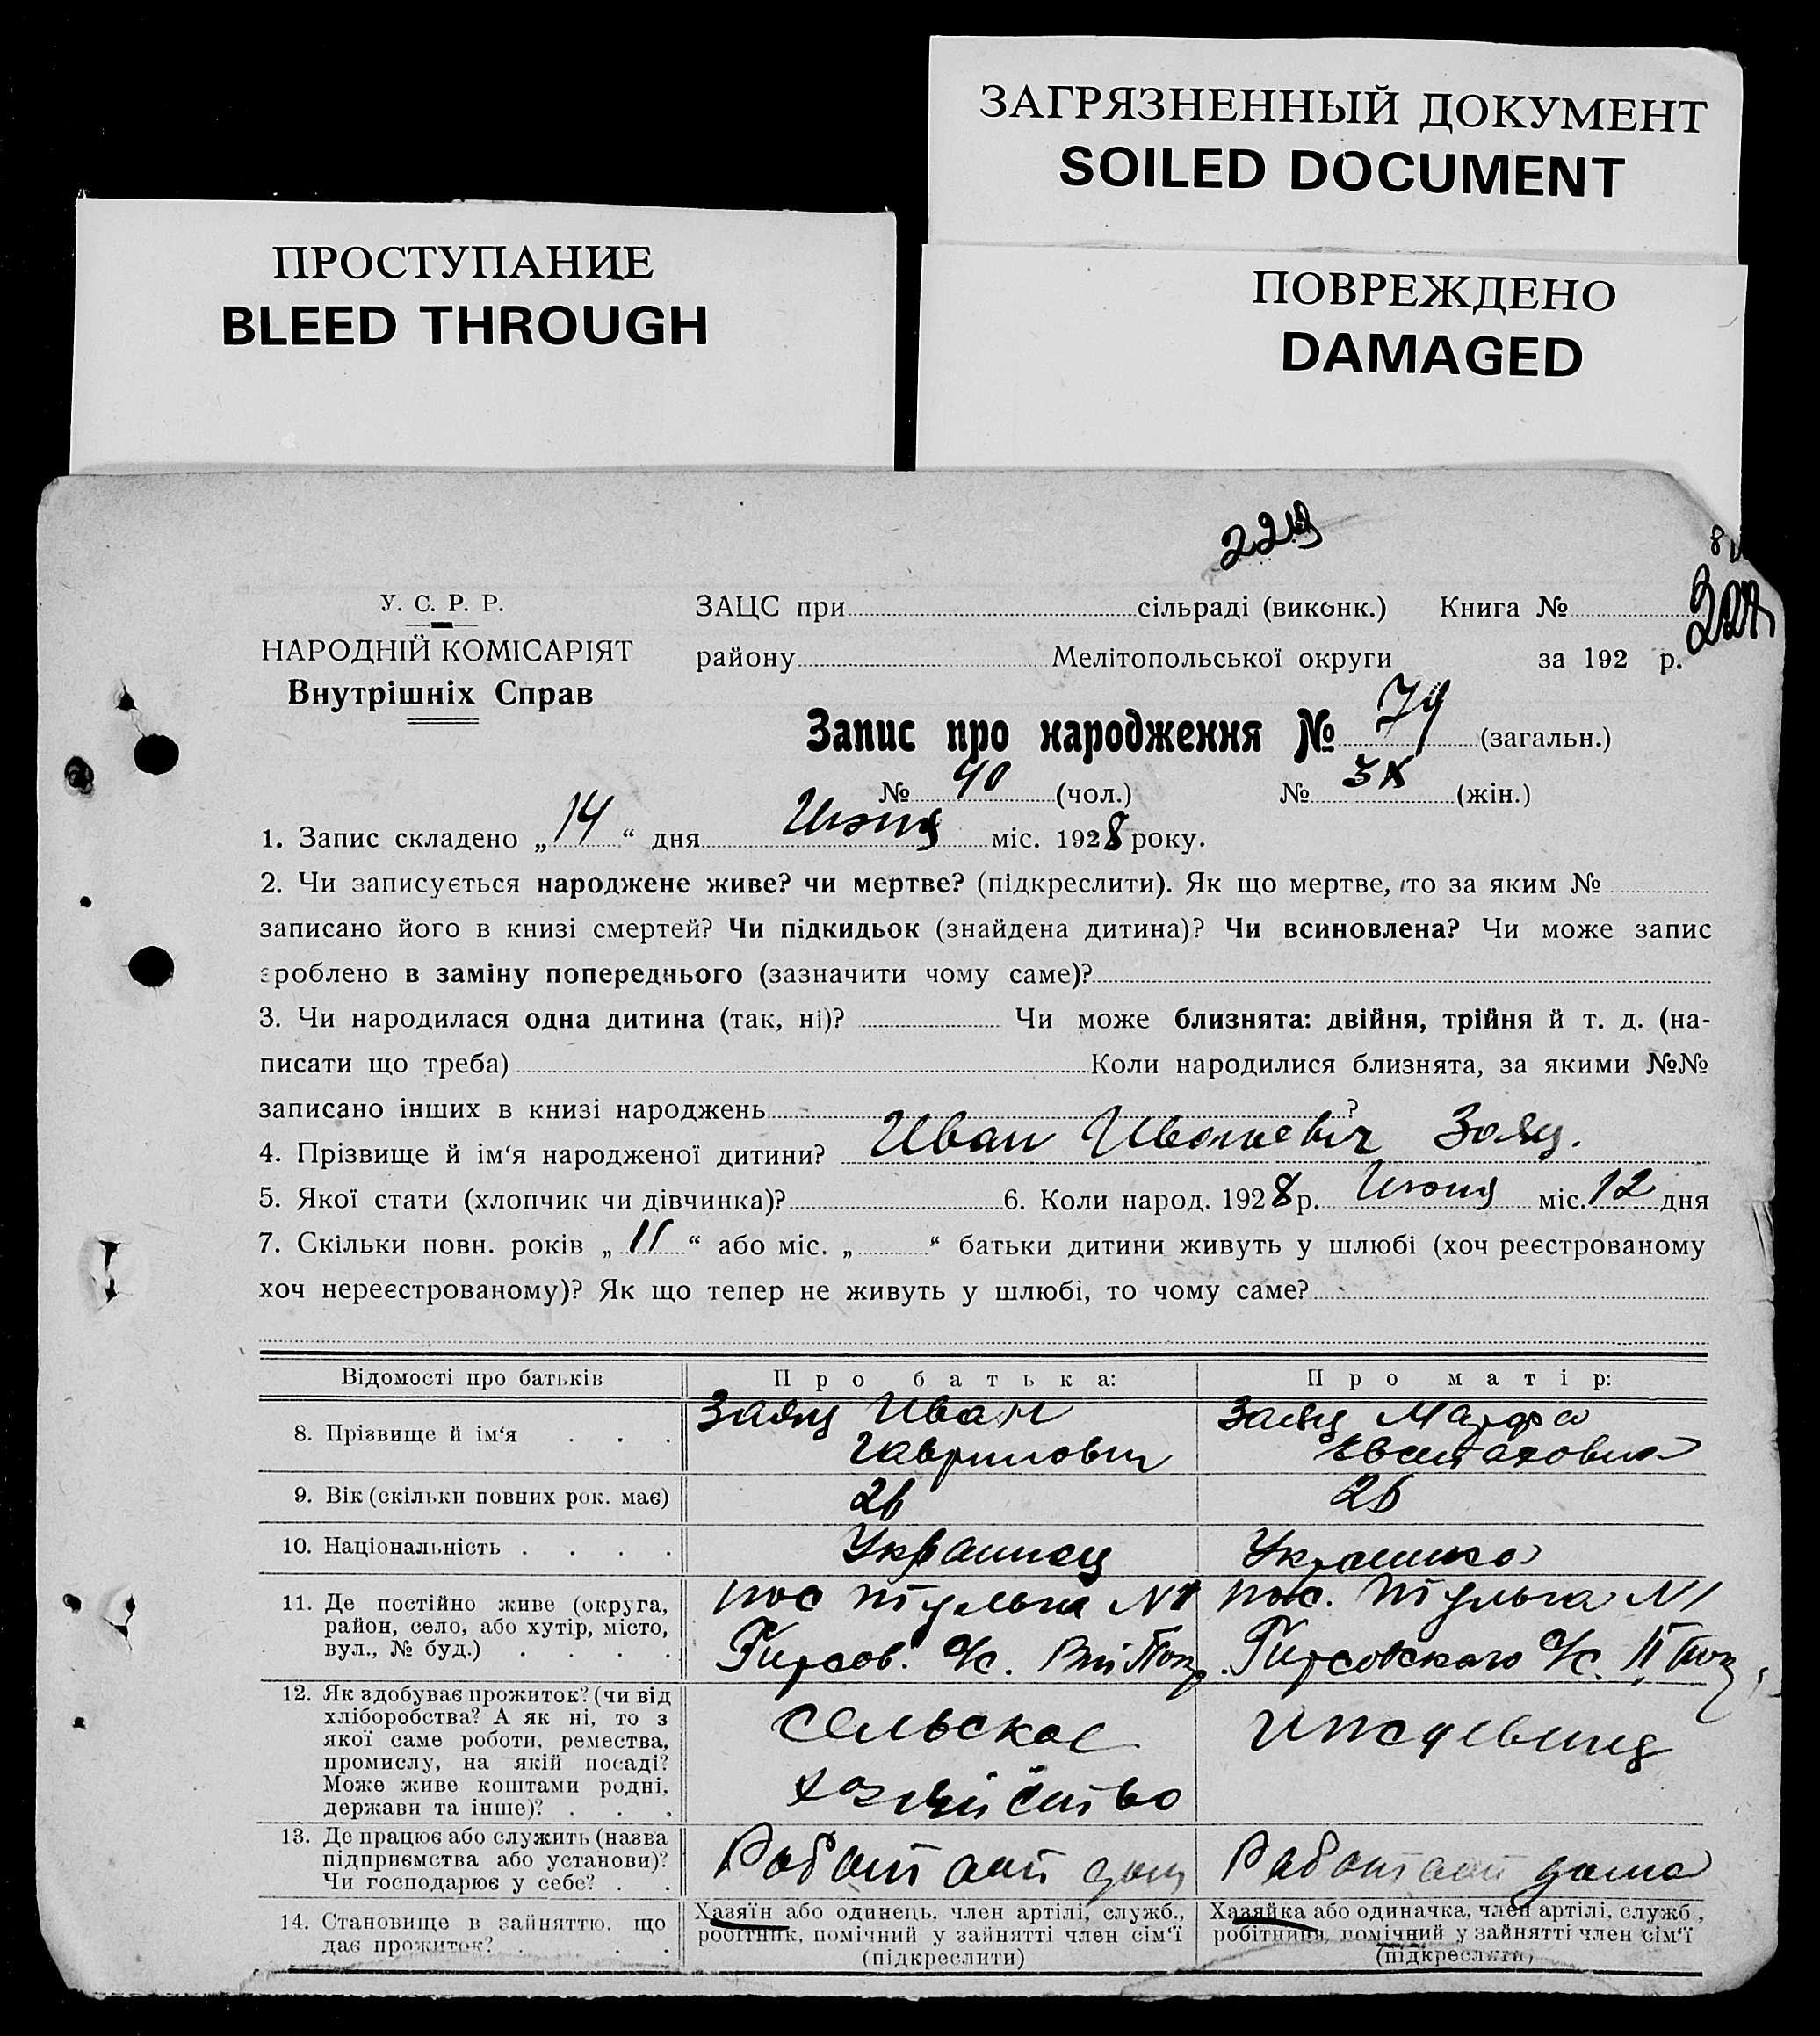 ЗАГРЯЗНЕННЫЙ ДОКУМЕНТ
SOILED DOCUMENT
ПРОСТУПАНИЕ
BLEED THROUGH
ПОВРЕЖДЕНО
DAMAGED
У. С. Р. Р.
НАРОДНІЙ КОМІСАРІЯТ
Внутрішніх Справ
ЗАЦС при сільраді (виконк.) Книга №
району Мелітопольської округи за 192 р.
Запис про народження № 79 (загальн.)
№ 40 (чол.) № (жін.)
1. Запис складено „14“ дня Июня міс. 1928 року.
2. Чи записується народжене живе? чи мертве? (підкреслити). Як що мертве, то за яким №
записано його в книзі смертей? Чи підкидьок (знайдена дитина)? Чи всиновлена? Чи може запис
зроблено в заміну попереднього (зазначити чому саме)?
3. Чи народилася одна дитина (так, ні)? Чи може близнята: двійня, трійня й т. д. (на-
писати що треба) Коли народилися близнята, за якими №№
записано інших в книзі народжень ?
4. Прізвище й ім‘я народженої дитини? Иван Иванович Заяц.
5. Якої стати (хлопчик чи дівчинка)? 6. Коли народ. 1928 р. Июня міс. 12 дня
7. Скільки повн. років „11“ або міс. „ “ батьки дитини живуть у шлюбі (хоч реєстрованому
хоч нереєстрованому)? Як що тепер не живуть у шлюбі, то чому саме?
Відомості про батьків Про батька: Про матір:
8. Прізвище й ім‘я . . . Заяц Иван Гаврилович Заяц Марфа Евстаховна
9. Вік (скільки повних рок. має) 26 26
10. Національність . . . . Украинец Украинка
11. Де постійно живе (округа,
район, село, або хутір, місто,
вул., № буд.) . . . .
пос №1
Гирсов. с/с.
пос. №1
Гирсовского с/с.
12. Як здобуває прожиток? (чи від
хліборобства? А як ні, то з
якої саме роботи, ремества,
промислу, на якій посаді?
Може живе коштами родні,
держави та інше)? . . .
сельское
хозяйство
иждевениц
13. Де працює або служить (назва
підприємства або установи)?
Чи господарює у себе? . .
Работает дома
Работает дома
14. Становище в зайняттю, що
дає прожиток? . . . .
Хазяїн або одинець, член артілі, служб.,
робітник, помічний у зайнятті член сім‘ї
(підкреслити)
Хазяйка або одиначка, член артілі, служб.,
робітниця, помічний у зайнятті член сім‘ї
(підкреслити)